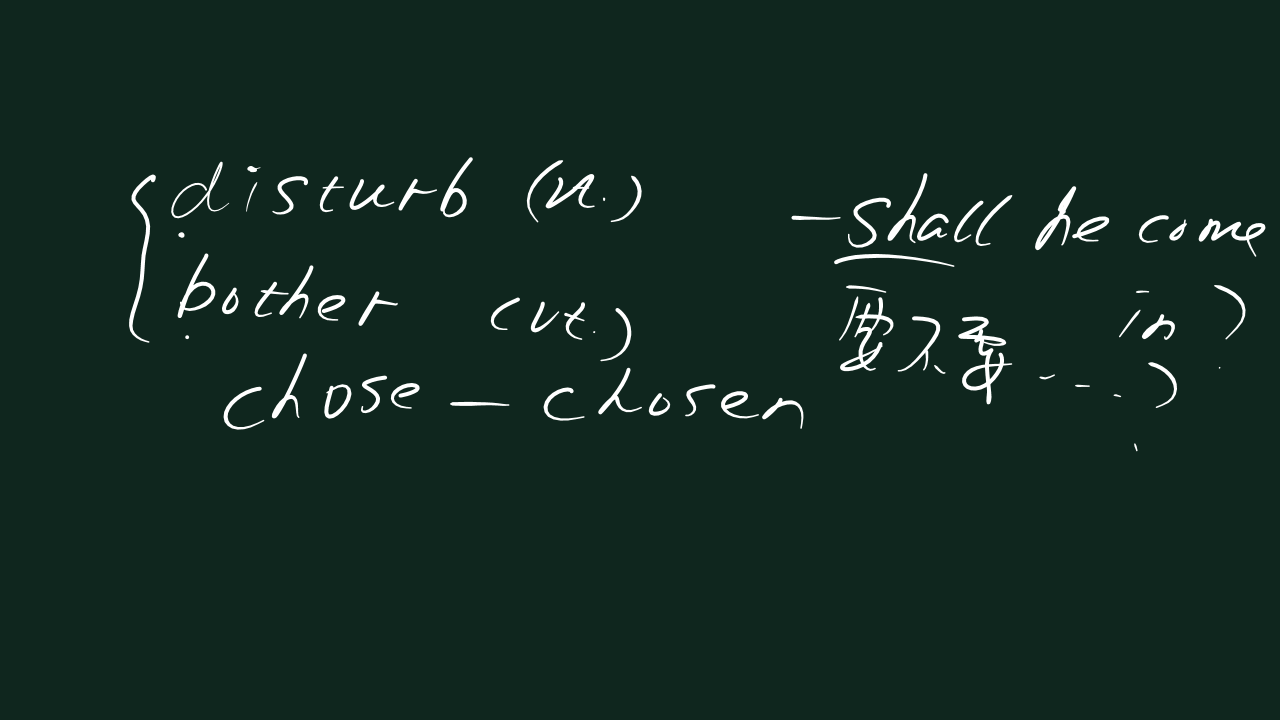 disturb (vt.)
bother (vt.)
chose — chosen
— shall he come
in ?
要不要 ---?